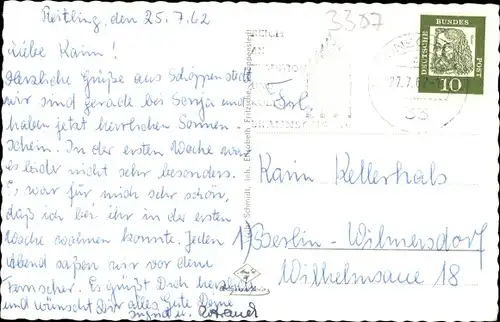 Reitling, den 25.7.62
Liebe Karin!
Herzliche Grüße aus Schöppenstedt
wir sind gerade bei Sonja und
haben jetzt herrlichen Sonnen-
schein. In der ersten Woche war
es leider nicht sehr besonders.
Es war für mich sehr schön,
daß ich bei ihr in der ersten
Woche wohnen konnte. Jeden
Abend saßen wir vor dem
Fernseher. Es grüßt Dich herzlich
und wünscht Dir alles Gute Deine
Sigrid u.
3307
DEUTSCHE BUNDESPOST
10
27.7.62
33
Frl.
Karin Kellerhals
1 Berlin-Wilmersdorf
Wilhelmsaue 18
Schmidt, Inh. Elisabeth Fritzsche, Schöppenstedt